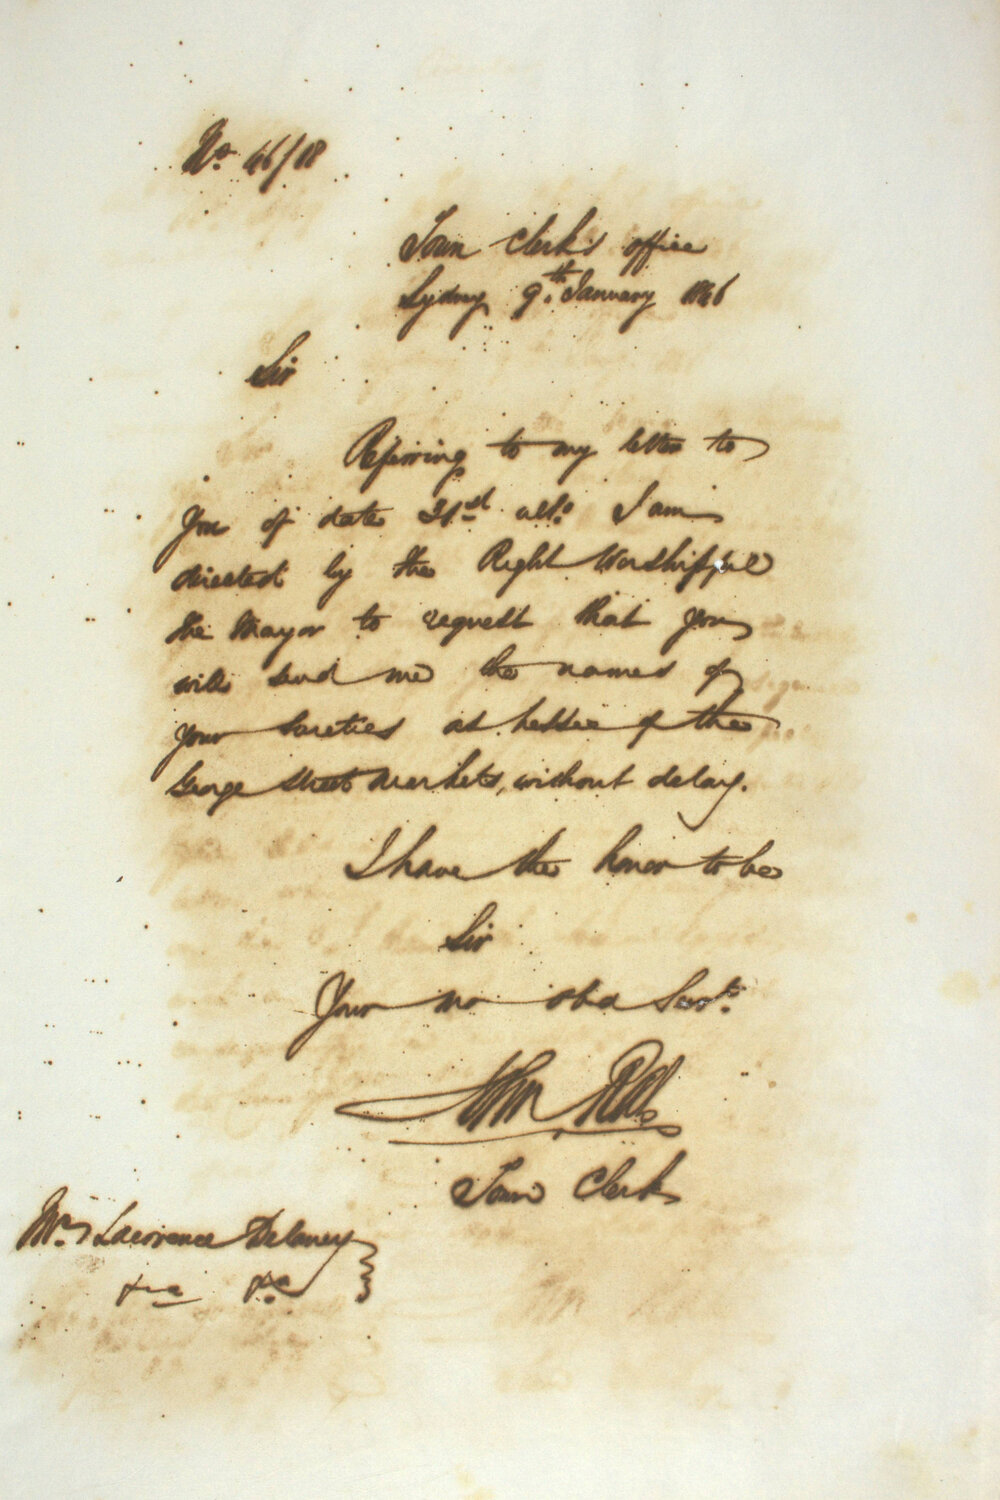 No. 46/18
Town Clerk's office
Sydney 9th. January 1846
Sir
Referring to my letter to
you of date 31st ulto. I am
directed by the Right Worshipful
the Mayor to request that you
will send me the names of
your sureties as lessee of the
George Street Markets, without delay.
I have the honor to be
Sir
Your mo obd Servt.
John Rae
Town Clerk
Mr. Lawrence Delaney
&c &c